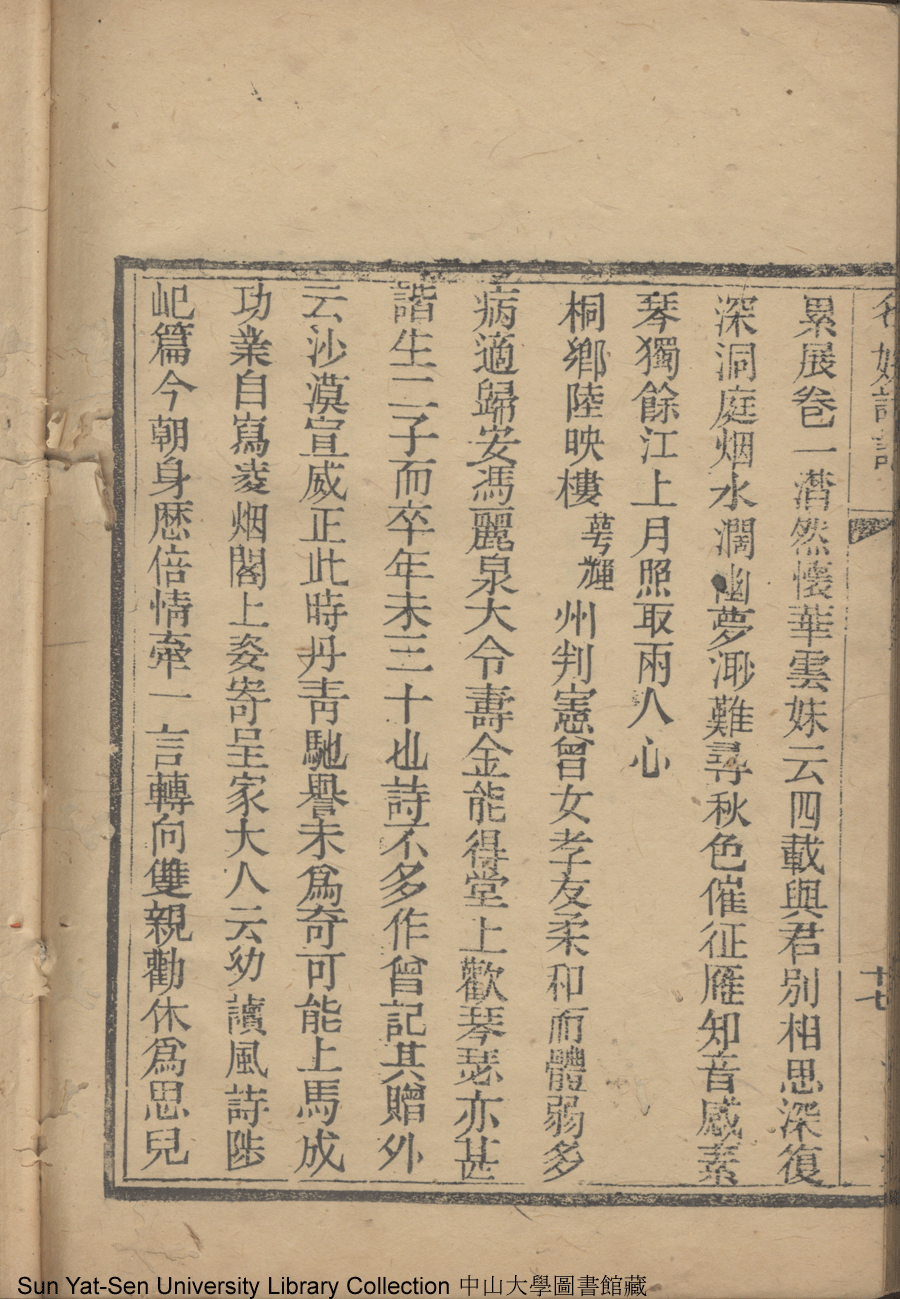 名媛詩話
十七
累展卷一潸然懷華雲妹云四載與君别相思深復
深洞庭烟水濶幽夢渺難尋秋色催征雁知音感素
琴獨餘江上月照取兩人心
桐鄉陸映樓萼輝州判憲曾女孝友柔和而體弱多
病適歸安馮麗泉大令壽金能得堂上歡琴瑟亦甚
諧生二子而卒年未三十也詩不多作曾記其贈外
云沙漠宣威正此時丹靑馳譽未爲奇可能上馬成
功業自寫凌烟閣上姿寄呈家大人云幼讀風詩陟
屺篇今朝身歴倍情牽一言轉向雙親勸休爲思兒
Sun Yat-Sen University Library Collection 中山大學圖書館藏